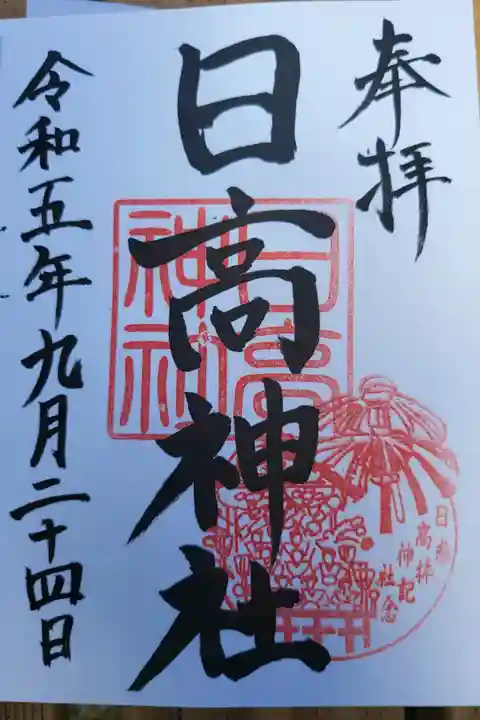 奉拝
日高神社
令和五年九月二十四日
日高
神社
日高神社
参拝記念